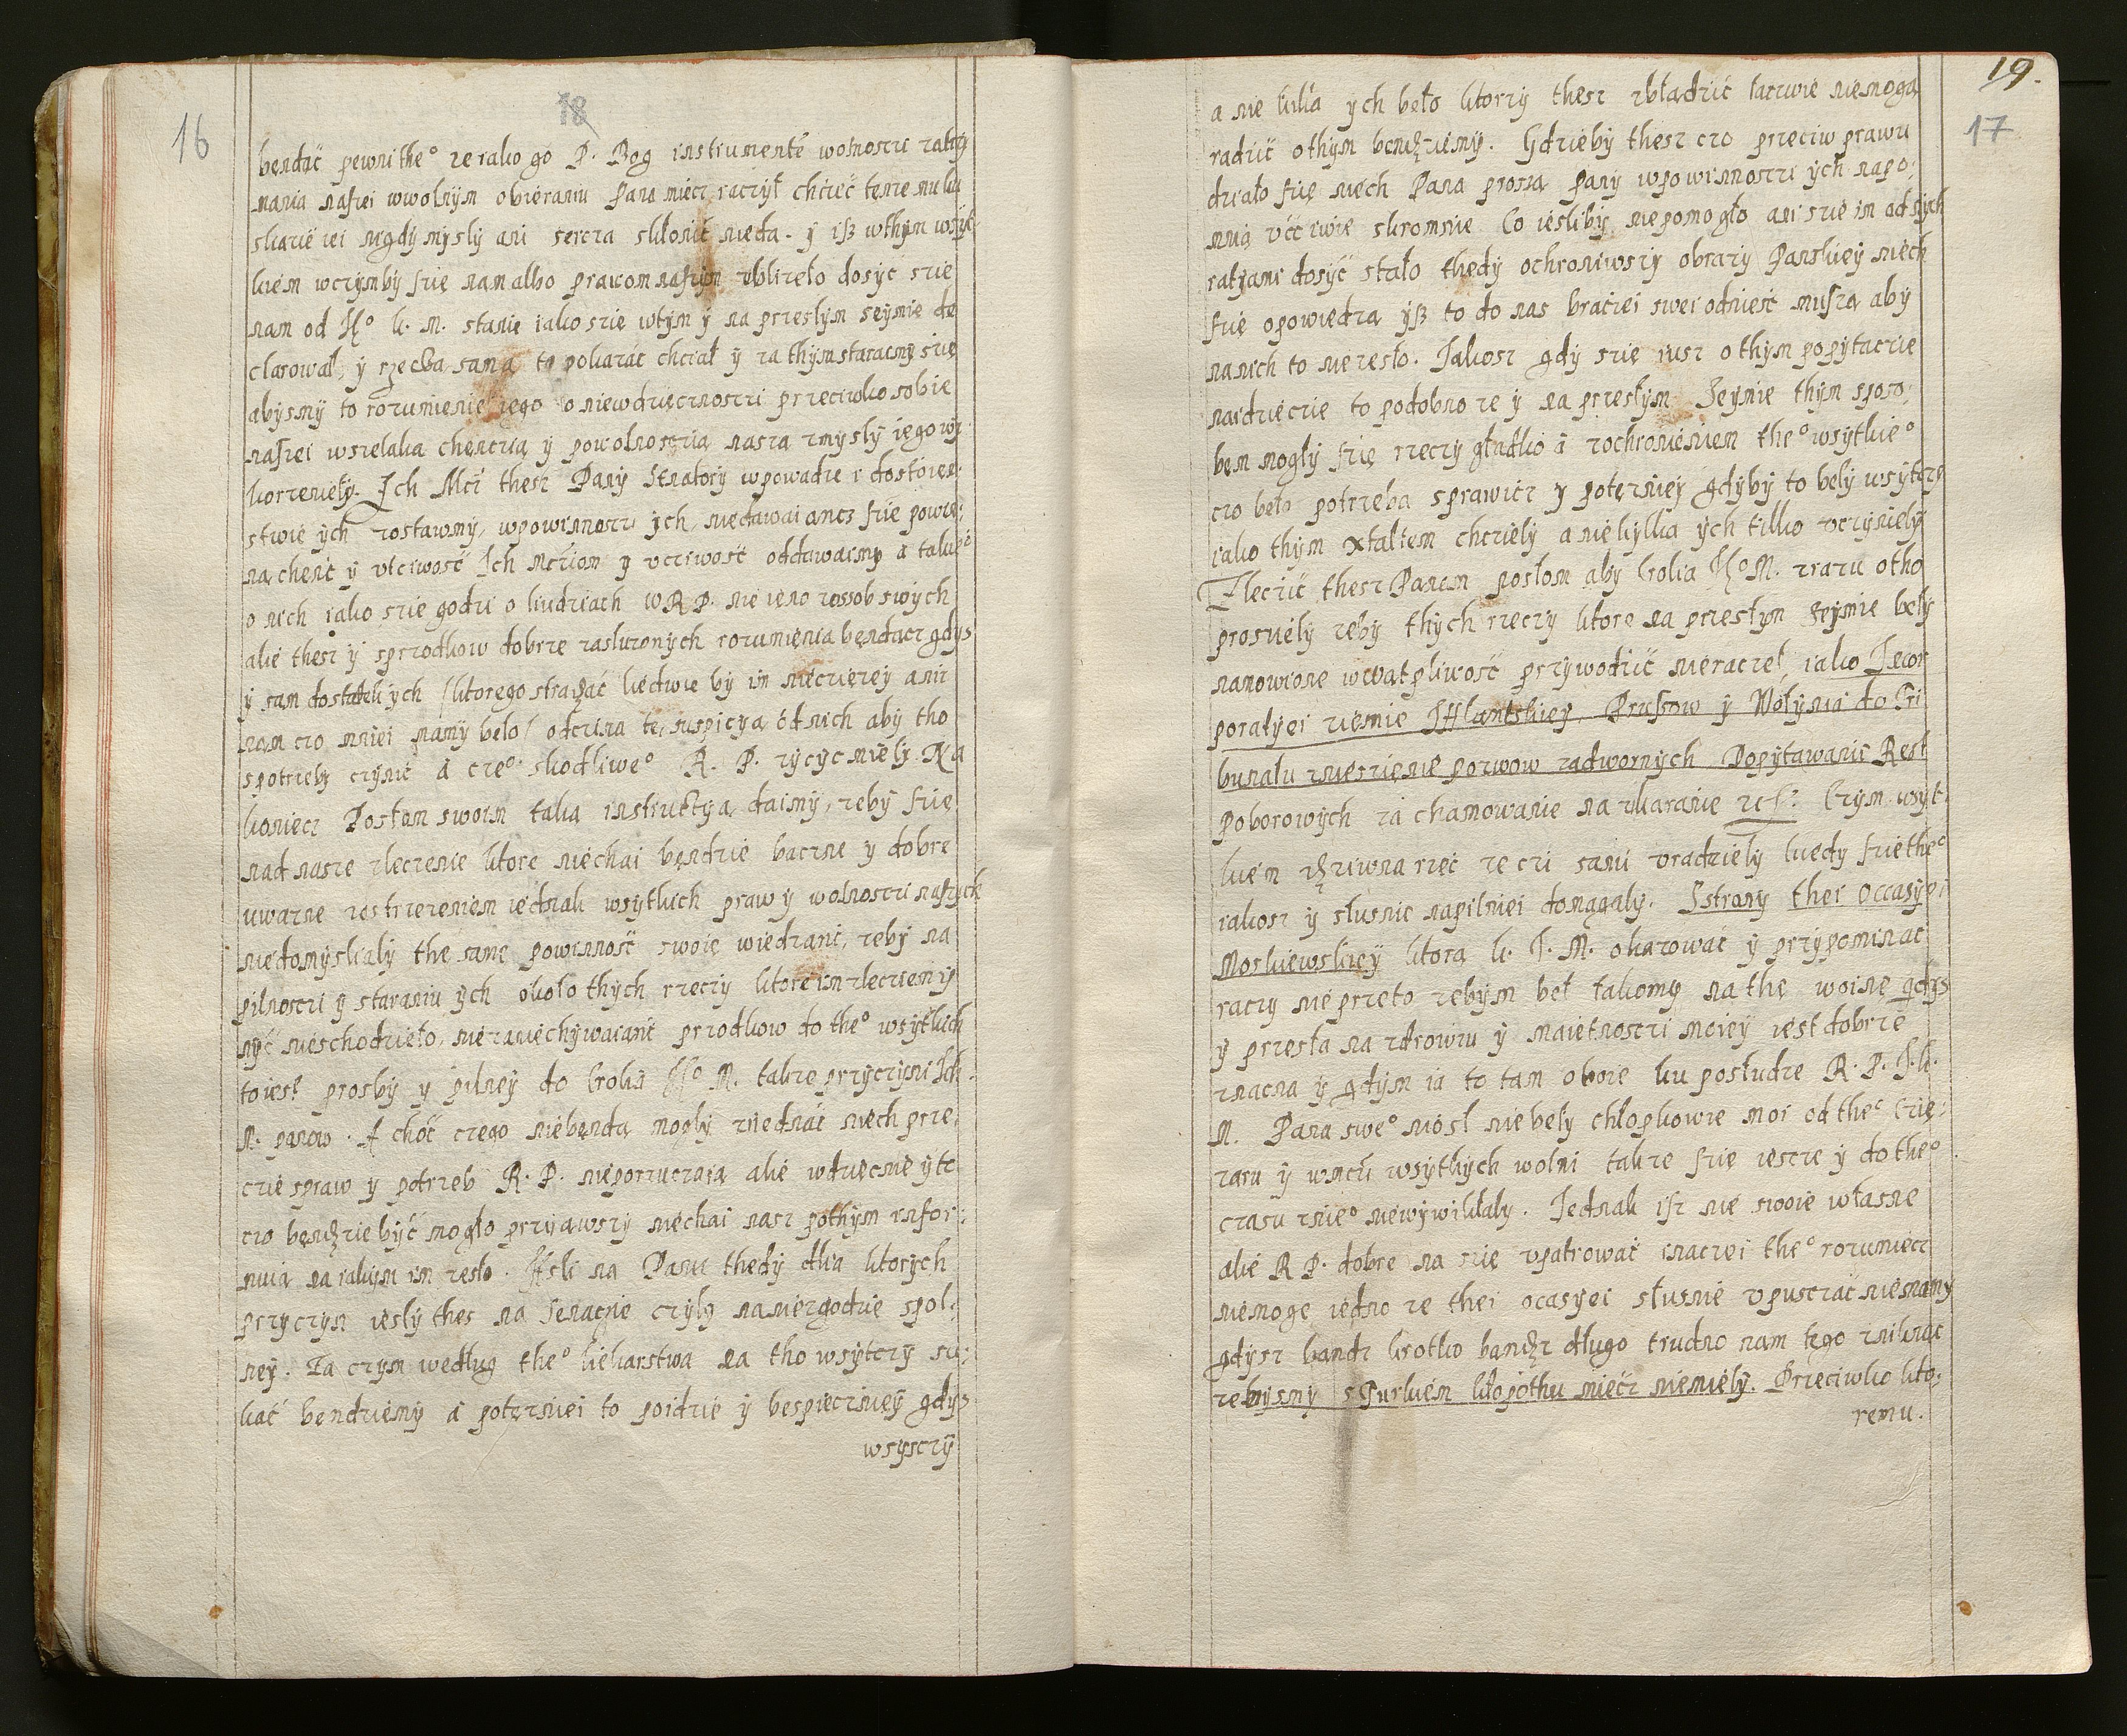 18
16
bendąć pewni the° ze iako go P. Bog instrumentē wolnosci
mania naszei wwolnym obieraniu Pana miecz raczył chcieć
skarżiei nigdy mysly ani serca skłonić nieda. y isz wthym wszyt
kiem wczymby się nam albo prawom naszym ubliżeło dosyć się
nam od K° K. M. stanie iako się wtym y na przeszłym seymie de
clarował, y rzeczą samą to pokazać chciał y za thym staraemy się
abysmy to rozumienie iego o niewdzięcznosci przeciwko sobie
naszei wszelaką chencią y powolnoscią naszą z mysły iego wy
korzeniely. Ich Mci thesz Pany Senatory wpowadze i dostoien
stwie ych zostawmy, wpowinnosci ych, niedawaiąncz się powie
na chenć y uczciwość Ich Mciom y uczciwość oddawaimy a
o nich iako się godzi o liudziach w R P. nie ieno zossob swych
alie thesz y sprzodkow dobrze zasłużonych rozumienia bendącz gdys
y sam dostatek ych / ktorego strażać liedwie by im nieciężey anii
nam czo mniei mamy beło / odcina tę suspicyą od nich aby tho
spotrzeby czynić a cze° skodliwe° R. P. życyc miely. Na
koniecz Posłom swoim taką instructyą daimy, żeby się
nad nasze zleczenie ktore niechai bęndzie baczne y dobrze
uważne zostrzezeniem iednak wszytkich praw y wolnosci naszych
niedomyslialy the samę powinność swoię wiedzanc, żeby na
pilnosci y staraniu ych około thych rzeczy ktore im zlecziemy
nyć nieschodzieło, niezaniechywaiąnc przodkow do the° wszytkich
to iest prosby y pilney do Krolia K° M. także przyczyni Ich
M. panow. A choć czego niebendą mogly ziednać niech prze
cie spraw y potrzeb R. P. nieporzuczaią alie wdzięcznie y to
czo bendzie być mogło przyiąwszy niechai nasz pothym infor
muią na iakym im zeszło. Jesli na Panu thedy dlia ktorych
przyczyn iesły thes na Senacie czyly naniezgodzie spol
ney. Za czym według the° liekarstwa na tho wszytczy szu
kać bendziemy a potęzniei to poidzie y bespieczniey gdys
wszysczy
19.
17
a nie kilka ych beło ktorzy thesz zbłądzić łaczwie niemogą
radzić othym bendziemy. Gdzieby thesz czo przeciw prawu
działo się niech Pana proszą pany wpowinnosci ych napo
mnią uczciwie skromnie Co iesliby niepomogło ani się im od
ratyami dosyć stało thedy ochroniwszy obrazy Panskiey niech
się opowiedzą ysz to do nas braciei swei odnieść muszą aby
na nich to niezeszło. Jakosz gdy się iusz othym popytacie
naidziecie to podobno że y na przeszłym Seymie thym sposo
bem mogły się rzeczy gładko a zochronieniem the° wszytkie°
czo beło potrzeba sprawicz y potęzniey gdyby to bely wszytczy
iako thym xtałtem chcziely a niekyllka ych tilko uczyniely
Zleczić thesz Panom posłom aby Krolia K° M. zrazu otho
prosiely żeby thych rzeczy ktore na przeszłym seymie bely
nanowione wwątpliwość przywodzić nieraczeł, iako Jecor
poratyei ziemie Ifflantskiey, Prussow y Wołynia do Tri
bunału zniesienie pozwow zadwornych Popytawanie Rest
Poborowych zahamowanie na skaranie etc: Czym wszyt
kiem dziwna rzecz że czi sami uradziely kiedy się the°
iakosz y słusnie napilniei domagały. Sstrony thei occasyei
Moskiewskiey ktorą K. J. M. okazować y przypominać
raczy nie przeto żebym beł łakomy na thę woinę gdys
y prześła na zdrowiu y maietnosci moiey iest dobrze
znaczna y gdym ia to tam oboie ku posłudze R. P. J. K.
M. Pana swe° niosł nie bely chłopkowie moi od the° Cię
żaru y wmcu wszythych wolni także się iescze y do the°
czasu znie° niewywikłaly. Jednak isz nie swoie własne
alie R P. dobre na się upatrować inaczei the° rozumiecz
niemogę iedno że thei ocasyei słusnie upusczać niemamy
gdysz bandz krotko bandz długo trudno nam tego znikać
żebysmy sTurkiem kłopothu miecz niemiely. Przeciwko kto
remu.